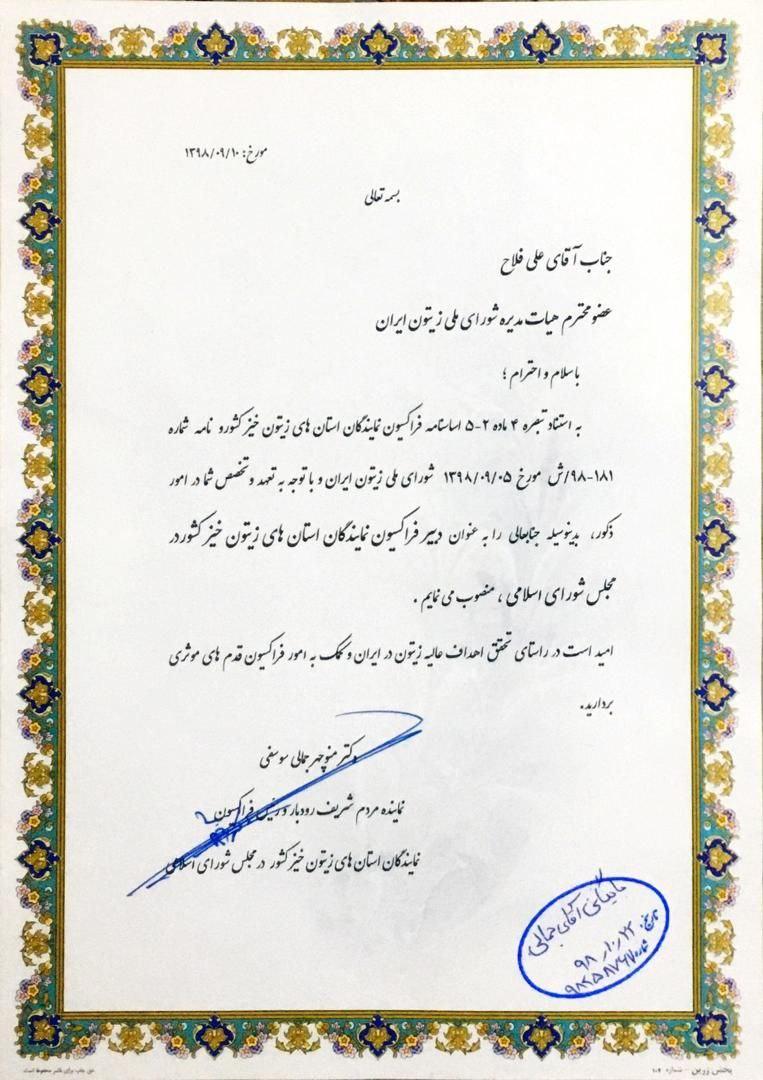 مورخ: ۱۳۹۸/۰۹/۱۰
بسمه تعالی
جناب آقای علی فلاح
عضو محترم هیات مدیره شورای ملی زیتون ایران
باسلام و احترام ؛
به استناد تبصره ۴ ماده ۲-۵ اساسنامه فراکسیون نمایندگان استان های زیتون خیز کشور و نامه شماره
۱۸۱-۹۸/ش مورخ ۱۳۹۸/۰۹/۰۵ شورای ملی زیتون ایران و با توجه به تعهد و تخصص شما در امور
ذکور، بدینوسیله جنابعالی را به عنوان دبیر فراکسیون نمایندگان استان های زیتون خیز کشور در
مجلس شورای اسلامی ، منصوب می نمایم .
امید است در راستای تحقق اهداف عالیه زیتون در ایران و کمک به امور فراکسیون قدم های موثری
بردارید.
دکتر منوچهر جمالی سوسفی
نماینده مردم شریف رودبار و رئیس فراکسیون
نمایندگان استان های زیتون خیز کشور در مجلس شورای اسلامی
بایگانی آقای جمالی
تاریخ: ۹۸٫۱۰٫۲۲
شماره
پخش زرین - شماره ۱۰۶
حق چاپ برای ناشر محفوظ است